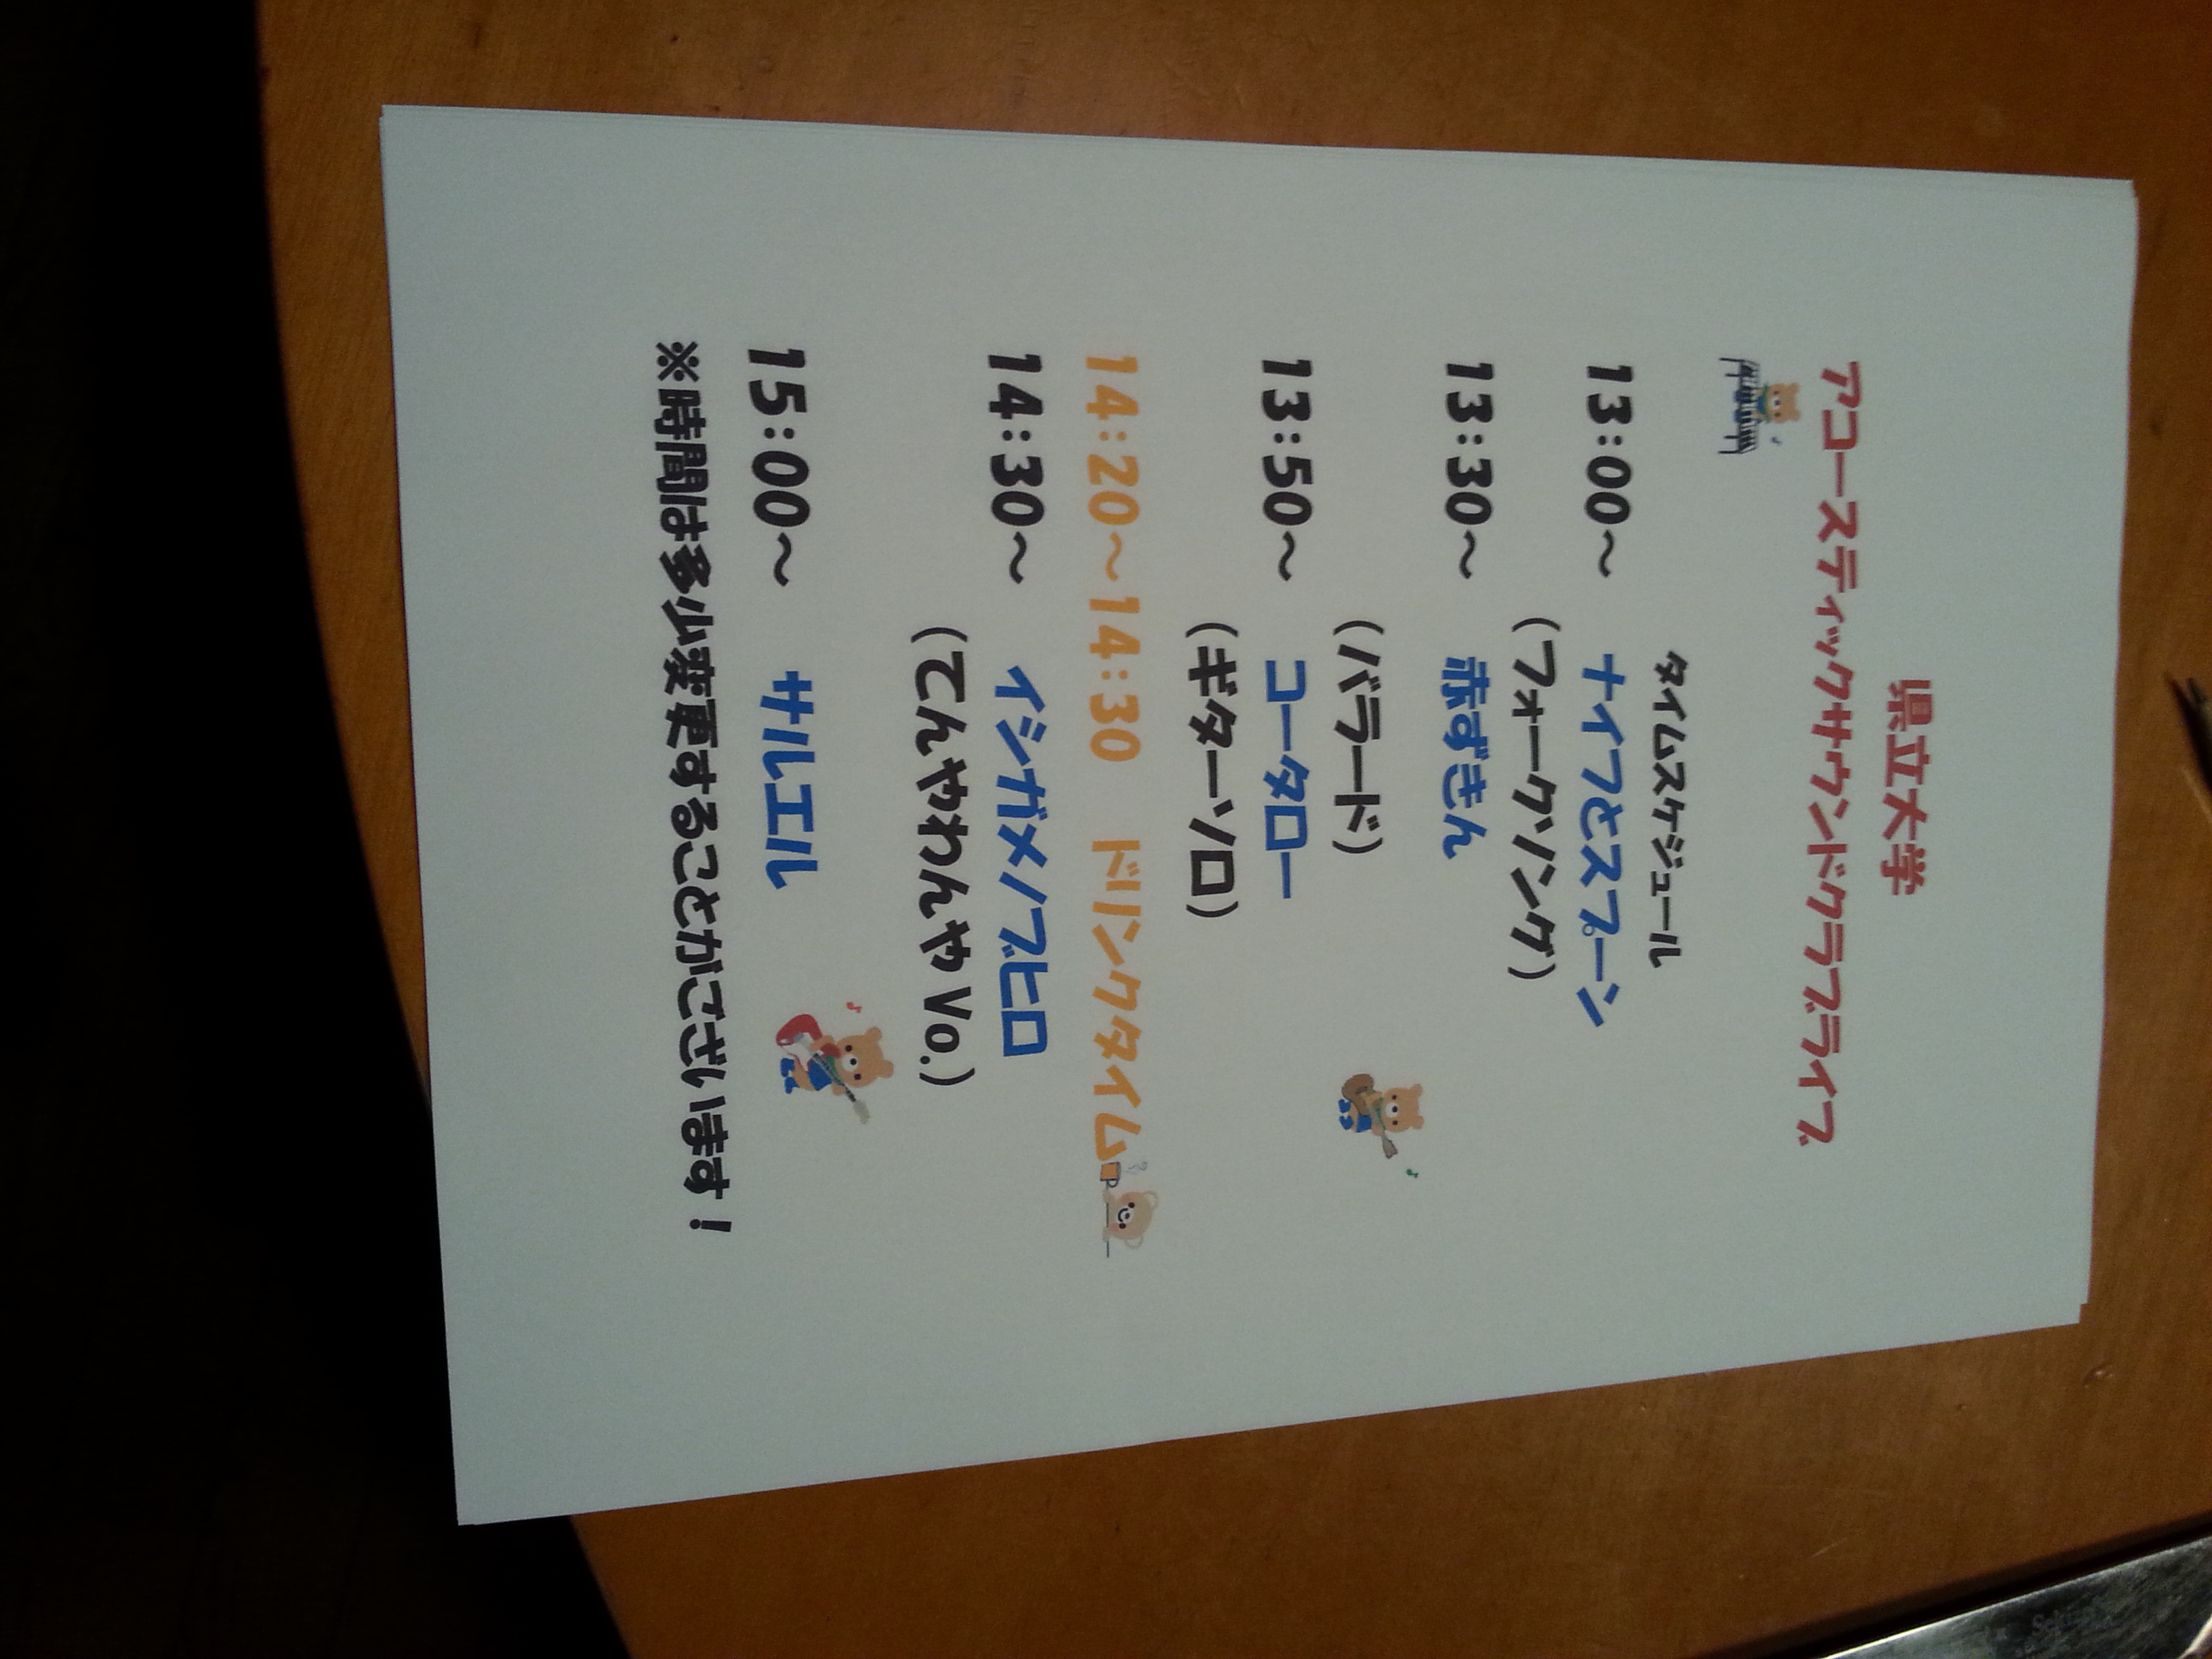 県立大学
アコースティックサウンドクラブライブ
タイムスケジュール
13:00～ ナイフとスプーン
(フォークソング)
13:30～ 赤ずきん
(バラード)
13:50～ コータロー
(ギターソロ)
14:20～14:30 ドリンクタイム
14:30～ イシガメノブヒロ
(てんやわんや Vo.)
15:00～ サルエル
※時間は多少変更することがございます！